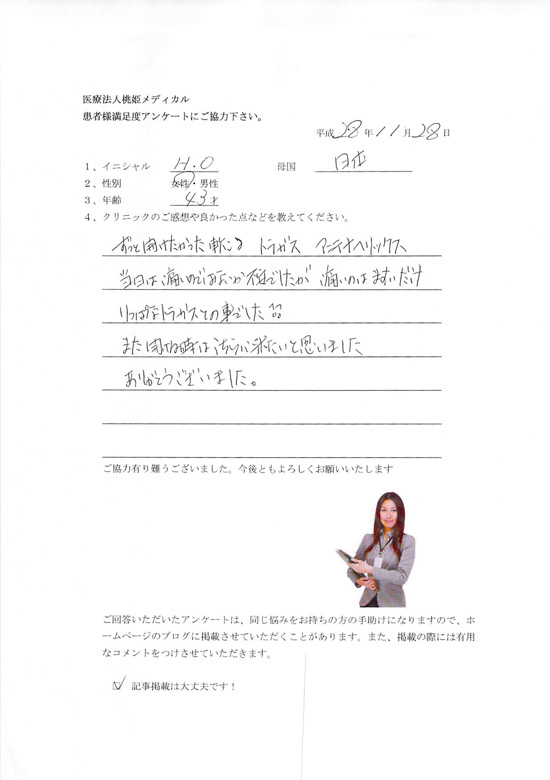 医療法人桃姫メディカル
患者様満足度アンケートにご協力下さい。
平成 28 年 11 月 28 日
1、イニシャル H.O 母国 日本
2、性別 女性・男性
3、年齢 43 才
4、クリニックのご感想や良かった点などを教えてください。
ずっと開けたかった軟こつ トラガス アンテナヘリックス
当日は痛いのではないか 不安でしたが 痛いのは ますいだけ
りっぱなトラガスとの事でした
また開ける時はこちらに来たいと思いました
ありがとうございました。
ご協力有り難うございました。今後ともよろしくお願いいたします
ご回答いただいたアンケートは、同じ悩みをお持ちの方の手助けになりますので、ホ
ームページのブログに掲載させていただくことがあります。また、掲載の際には有用
なコメントをつけさせていただきます。
☑ 記事掲載は大丈夫です！